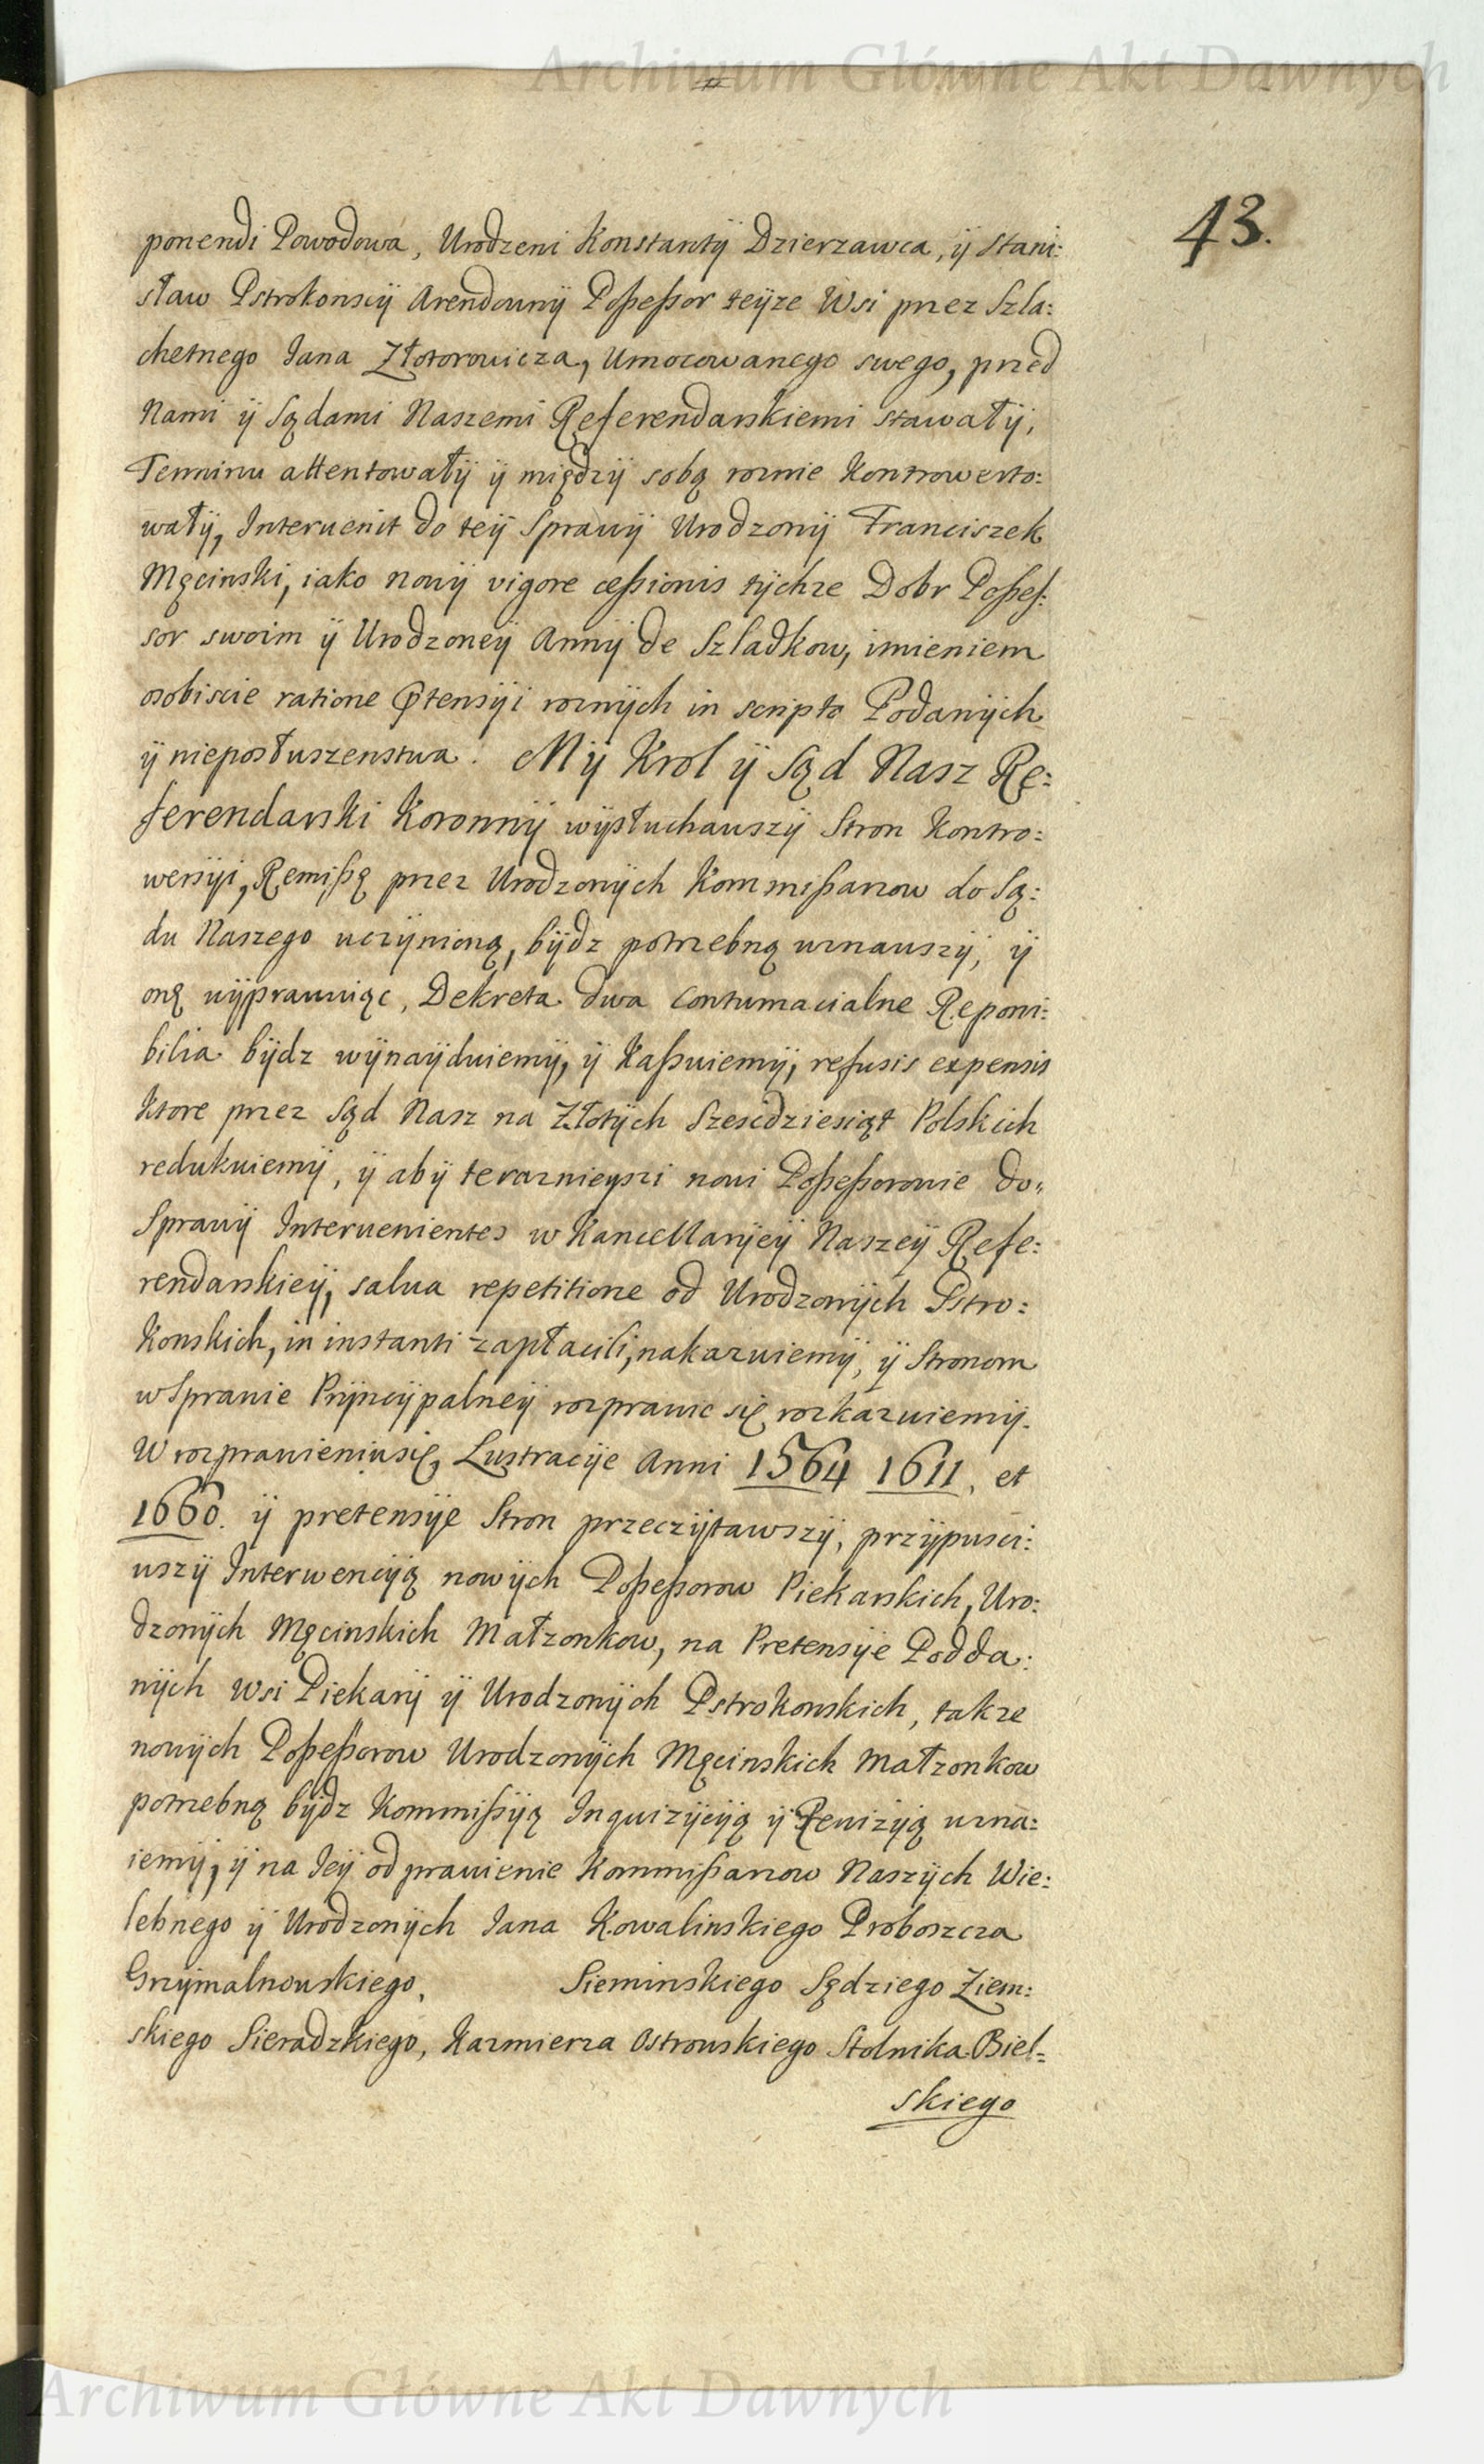 Archiwum Główne Akt Dawnych
43.
ponendi Powodowa, Urodzeni Konstantÿ Dzierzawca, ÿ Stani:
sław Pstrokonscÿ Arendownÿ Poßeßor teÿze Wsi przez Szla:
chetnego Jana Złotorowicza, Umocowanego swego, przed
Nami ÿ Sądami Naszemi Referendarskiemi stawałÿ,
Terminu attentowałÿ ÿ międzÿ sobą roznie Kontrowerto:
wałÿ, Interuenit do teÿ Sprawÿ Urodzonÿ Franciszek
Męcinski, iako nowÿ vigore ceßionis tÿchze Dobr Poßes:
sor swoim ÿ Urodzoneÿ Annÿ de Szladkow, imieniem
osobiscie ratione Ptensÿi roznÿch in scripto Podanÿch
ÿ nieposłuszenstwa. Mÿ Krol ÿ Sąd Nasz Re:
ferendarski Koronnÿ wÿsłuchauszÿ Stron Kontro:
wersÿi, Remißę przez Urodzonÿch Kommißarzow do Są:
du Naszego uczÿnioną, bÿdz potrzebną uznauszÿ, ÿ
onę uÿprawuiąc, Dekreta dwa contumacialne Reponi:
bilia bÿdz wÿnaÿduiemÿ, ÿ Kaßuiemÿ, refusis expensis
Ktore przez Sąd Nasz na Złotÿch Szescdziesiąt Polskich
redukuiemÿ, ÿ abÿ teraznieÿszi nowi Poßeßorowie do„
Sprawÿ Interuenientes w Kancellarÿeÿ Naszeÿ Refe:
rendarskieÿ, salua repetitione od Urodzonÿch Pstro:
Konskich, in instanti zapłacili, nakazuiemÿ, ÿ Stronom
w Sprawie Prÿncÿpalneÿ rozprawic się rozkazuiemÿ.
W rozprawieniu się, Lustracÿe Anni 1564 1611. et
1660. ÿ pretensÿe Stron przeczÿtawszÿ, przÿpusci:
uszÿ Interwencÿą nowÿch Poßeßorow Piekarskich, Uro:
dzonÿch Męcinskich Małzonkow, na Pretensÿe Podda:
nÿch Wsi Piekarÿ ÿ Urodzonÿch Pstrokonskich, takze
nowÿch Poßeßorow Urodzonÿch Męcinskich Małzonkow
potrzebną bÿdz Kommißÿą Inquizÿcÿą ÿ Rewizÿą uzna:
iemÿ, ÿ na Ieÿ odprawienie Kommißarzow Naszÿch Wie:
lebnego ÿ Urodzonÿch Jana Kowalinskiego Proboszcza
Grzÿmalnouskiego, Sieminskiego Sędziego Ziem:
skiego Sieradzkiego, Kazmierza Ostrouskiego Stolnika Biel=
skiego
Archiwum Główne Akt Dawnych